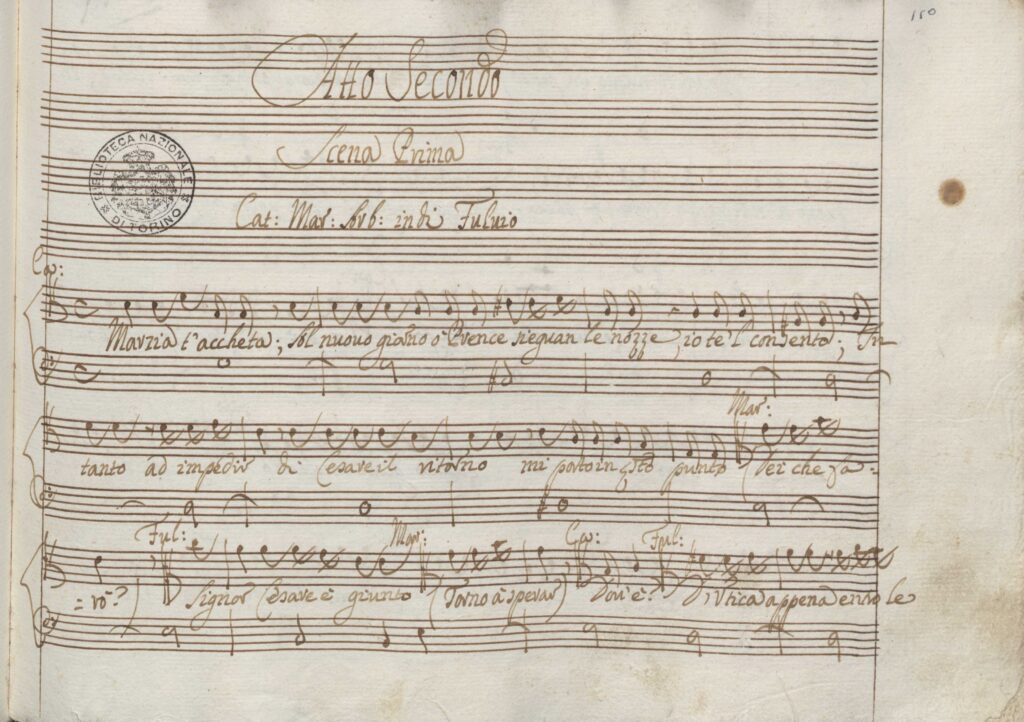 150
Atto Secondo
Scena Prima
BIBLIOTECA NAZIONALE DI TORINO
Cat: Mar: Arb: indi Fuluio
Ca:
Marzia t'accheta; Al nuouo giorno ò Prence sieguan le nozze, io te'l consento; In
Mar:
tanto ad impedir di Cesare il ritorno mi porto in qsto punto Dei che fa-
Ful: Mar: Ca: Ful:
=rò? Signor Cesare è giunto (Torno à sperar) Dou'è? D'Vtica appena entrò le